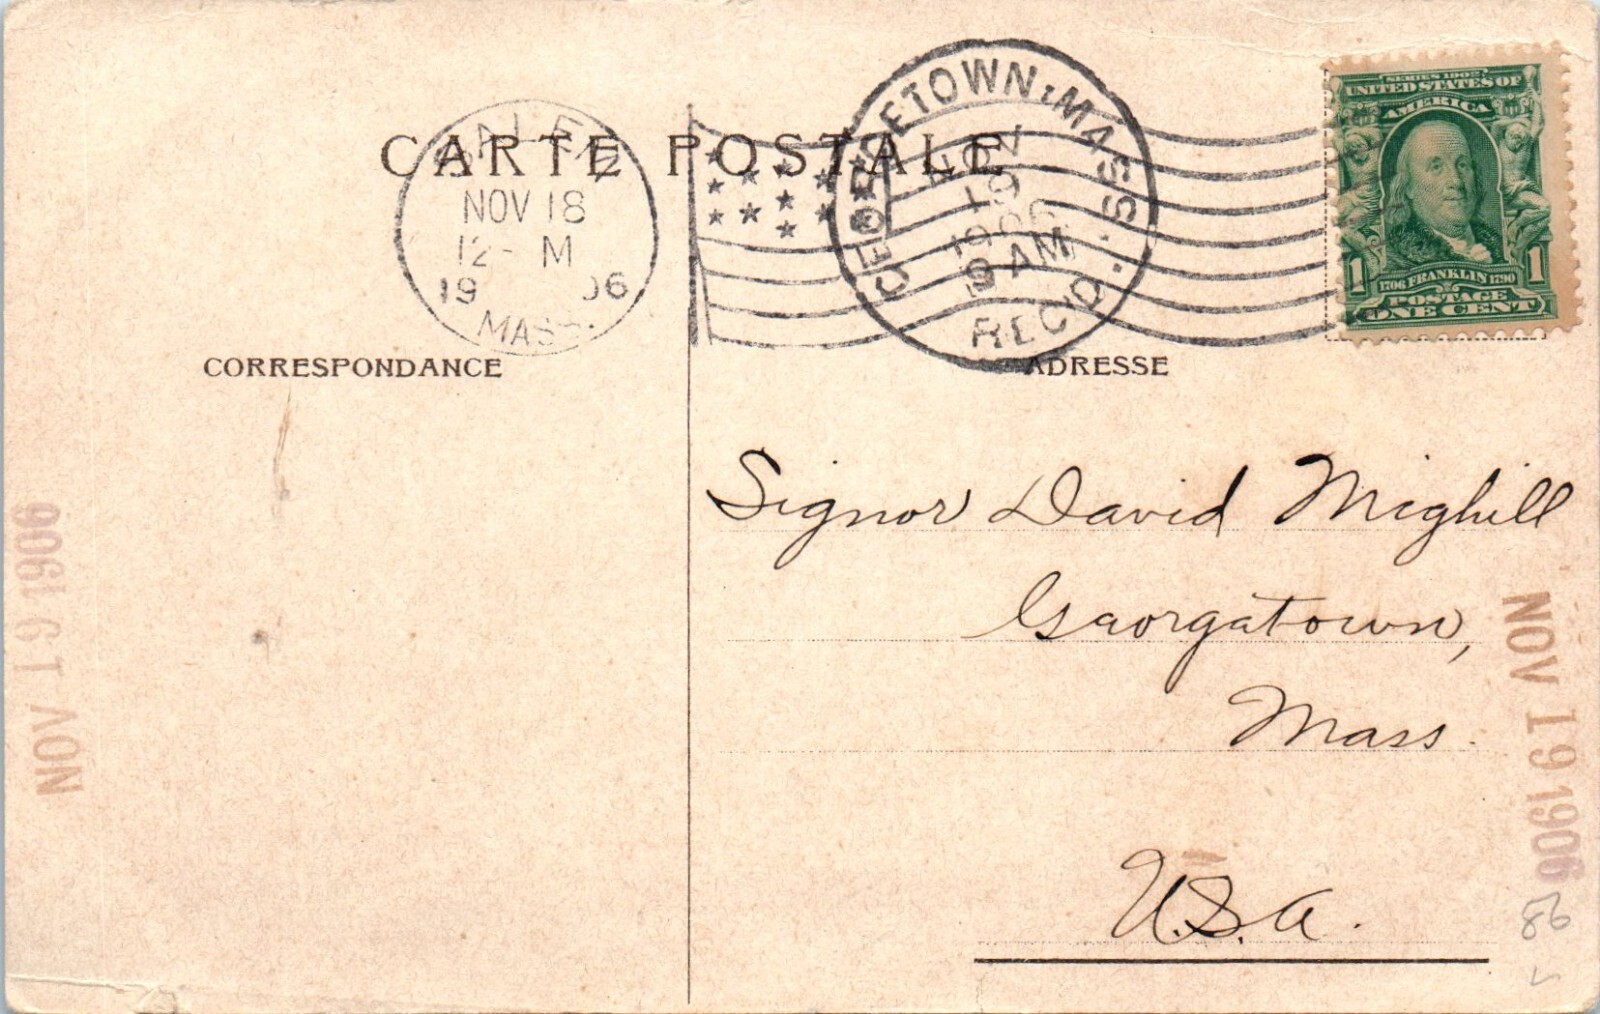 CARTE POSTALE
SALEM
NOV 18
12- M
19 06
MASS.
GEORGETOWN, MASS.
NOV
19
1906
9 AM
REC'D.
SERIES 1902
UNITED STATES OF
AMERICA
1 1
1706 FRANKLIN 1790
POSTAGE
ONE CENT
CORRESPONDANCE
ADRESSE
Signor David Mighill
Georgetown,
Mass.
U.S.A.
NOV 19 1906
NOV 19 1906
86